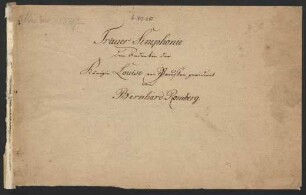 Trauer Simphonie
dem Andenken der
Königin Louise von Preußen gewidmet
von
Bernhard Romberg.